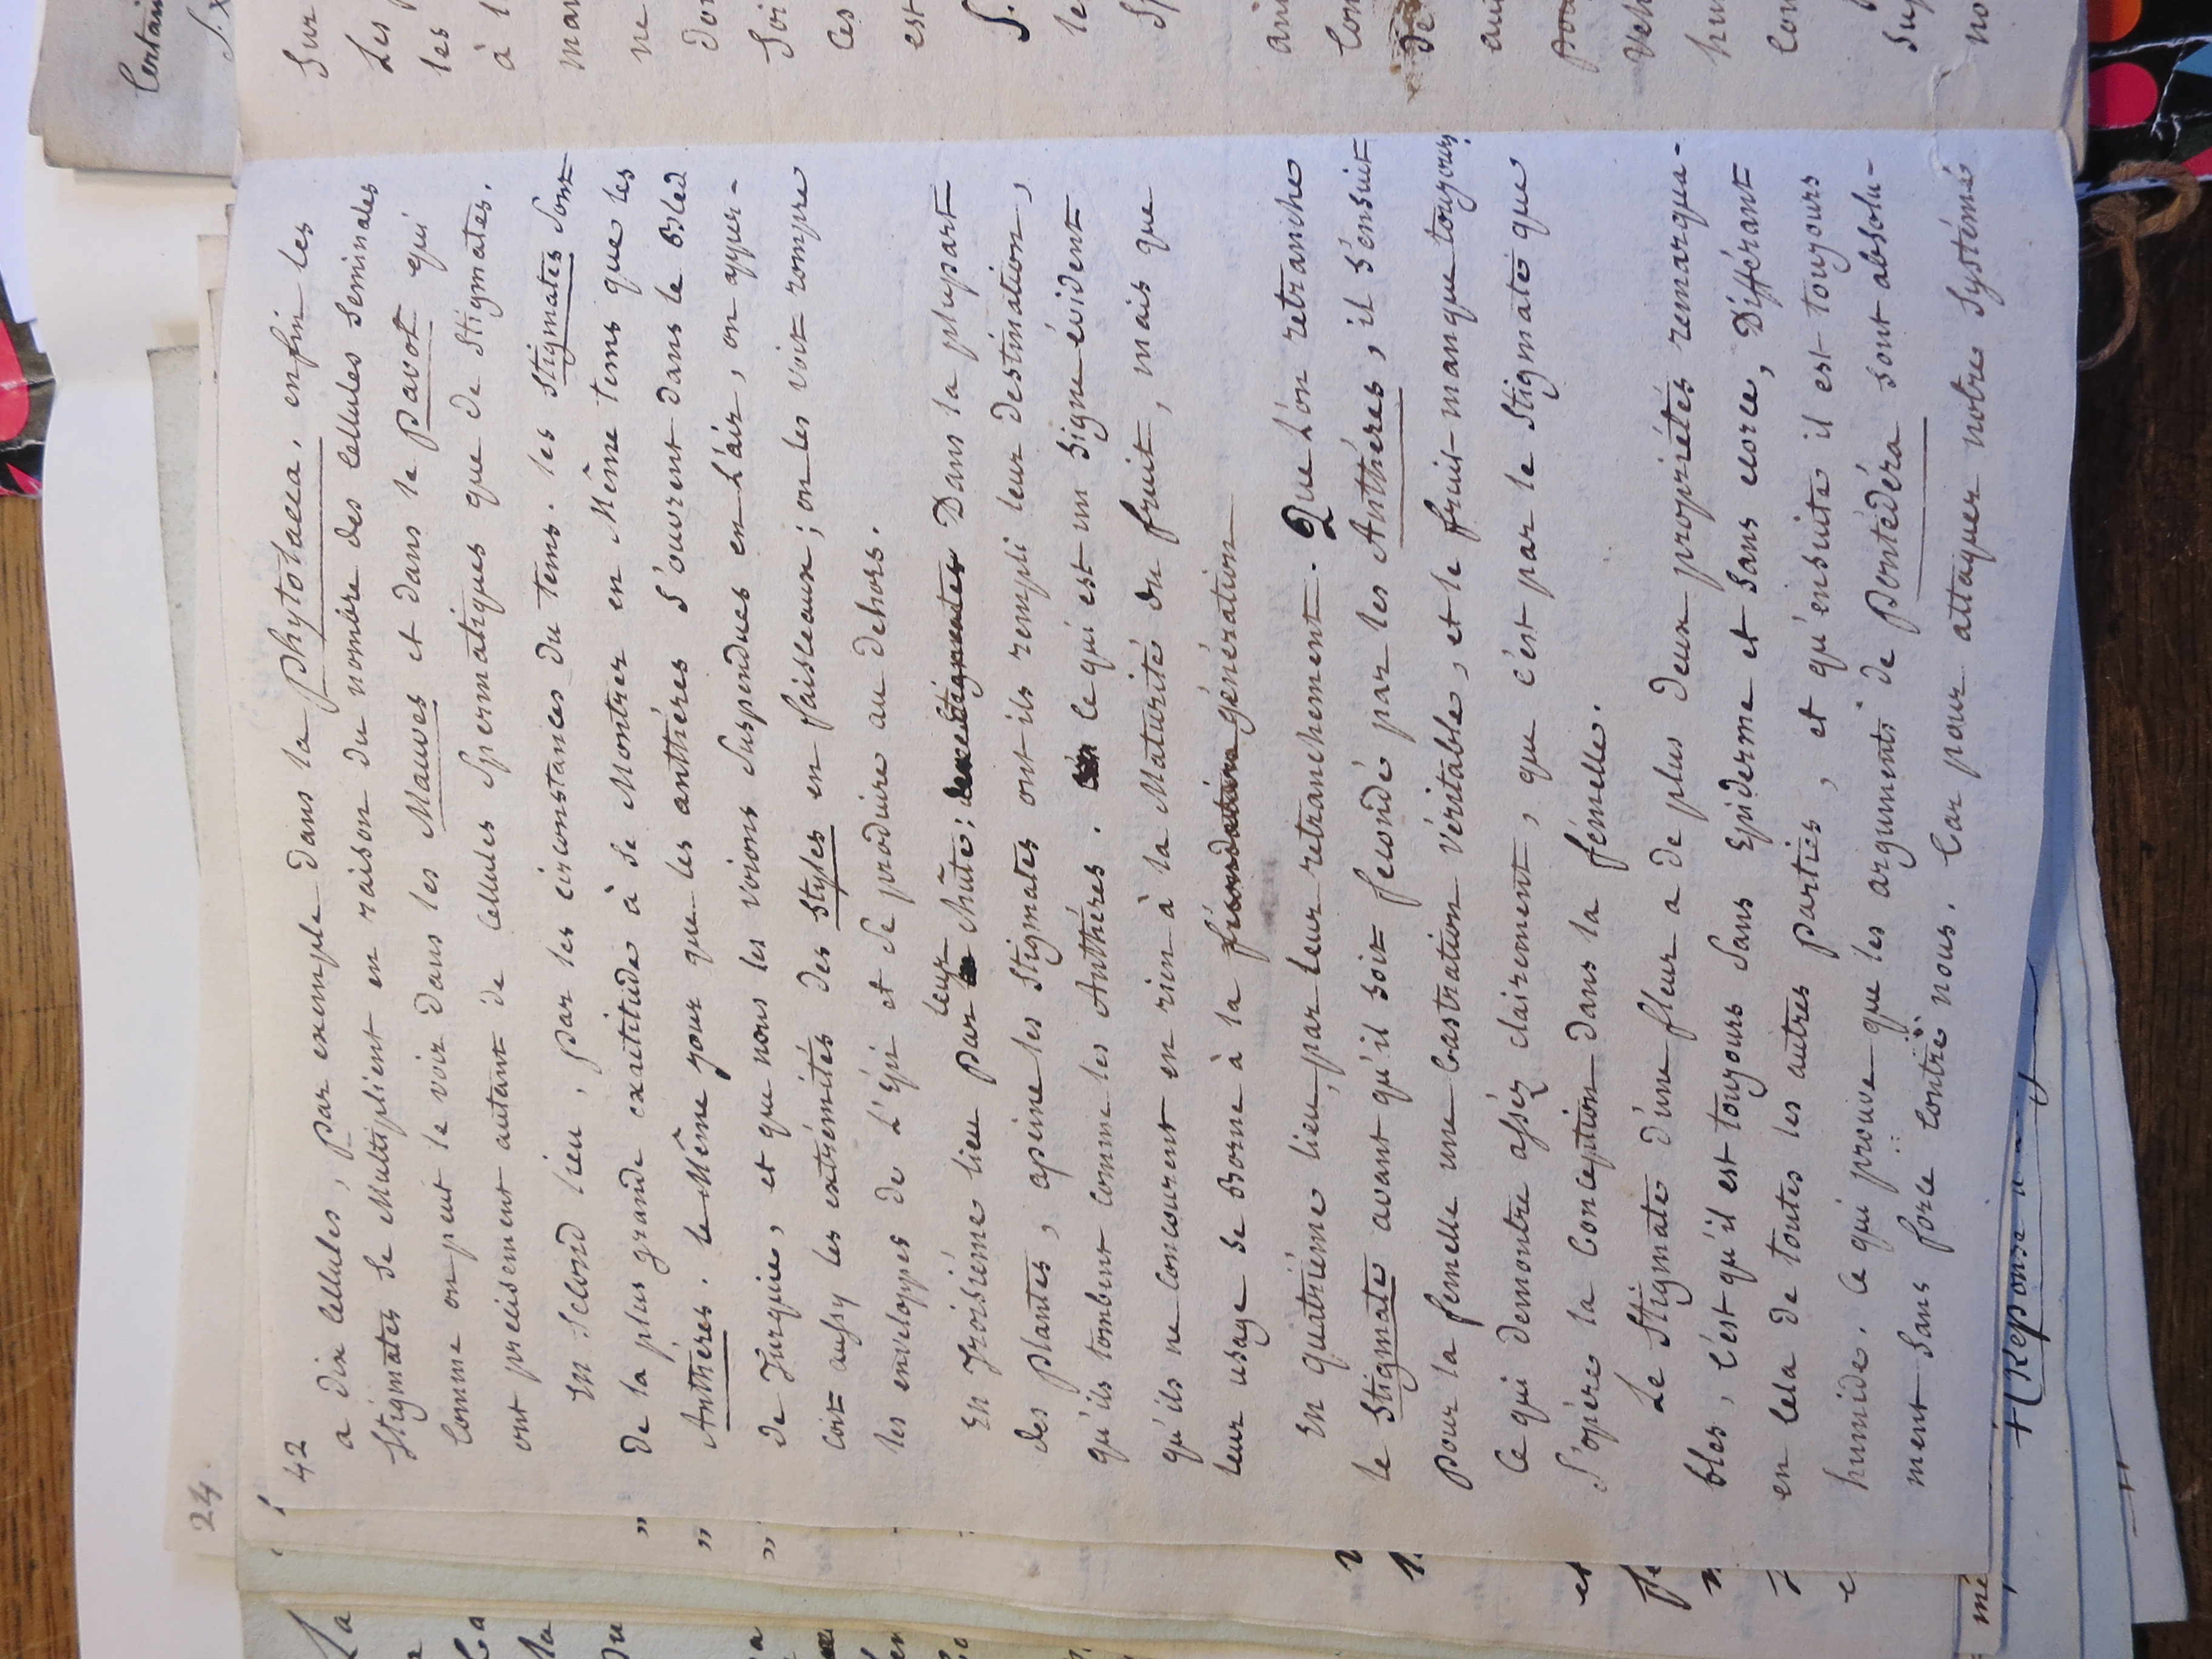 42
a dix cellules, par exemple dans la phytolacca, enfin les
Stigmates se Multiplient en raison du nombre des cellules seminales
Comme on peut le voir dans les Mauves et dans le pavot qui
ont precisement autant de cellules spermatiques que de stigmates.
En second lieu, par les circonstances du tems. les stigmates sont
De la plus grande exactitude à se Montrer en Même tems que les
Anthéres. le Même jour que les anthéres s'ouvrent dans le Bled
de Turquie, et que nous les voions suspendues en l'air, on apper-
coit aussy les extrémités des styles en faisseaux; on les voit rompre
les enveloppes de l'Epi et se produire au dehors.
En troisiéme lieu par leur chûte; Dans la plupart
des plantes, apeine les stigmates ont ils rempli leur destination,
qu'ils tombent comme les Anthéres. ce qui est un signe évident
qu'ils ne concourent en rien à la Maturité du fruit, mais que
leur usage se Borne à la fécondation génération
En quatriéme lieu, par leur retranchement. Que l'on retranche
le Stigmate avant qu'il soit fecondé par les Anthéres, il s'ensuit
pour la femelle une castration véritable, et le fruit manque toujours,
Ce qui demontre assez clairement, que c'est par le stigmate que
s'opére la Conception dans la fémelle.
Le Stigmate d'une fleur a de plus deux propriétés remarqua-
bles, c'est qu'il est toujours sans Epiderme et sans ecorce, Différant
en cela de toutes les autres parties, et qu'ensuite il est toujours
humide. Ce qui prouve que les arguments de Pontédéra sont absolu-
ment sans force contre nous. Car pour attaquer notre Systéme
24
+ (Reponse a
Certain
Sur
Les
les
à l
ne
Soi
ces
est
S.
le
de